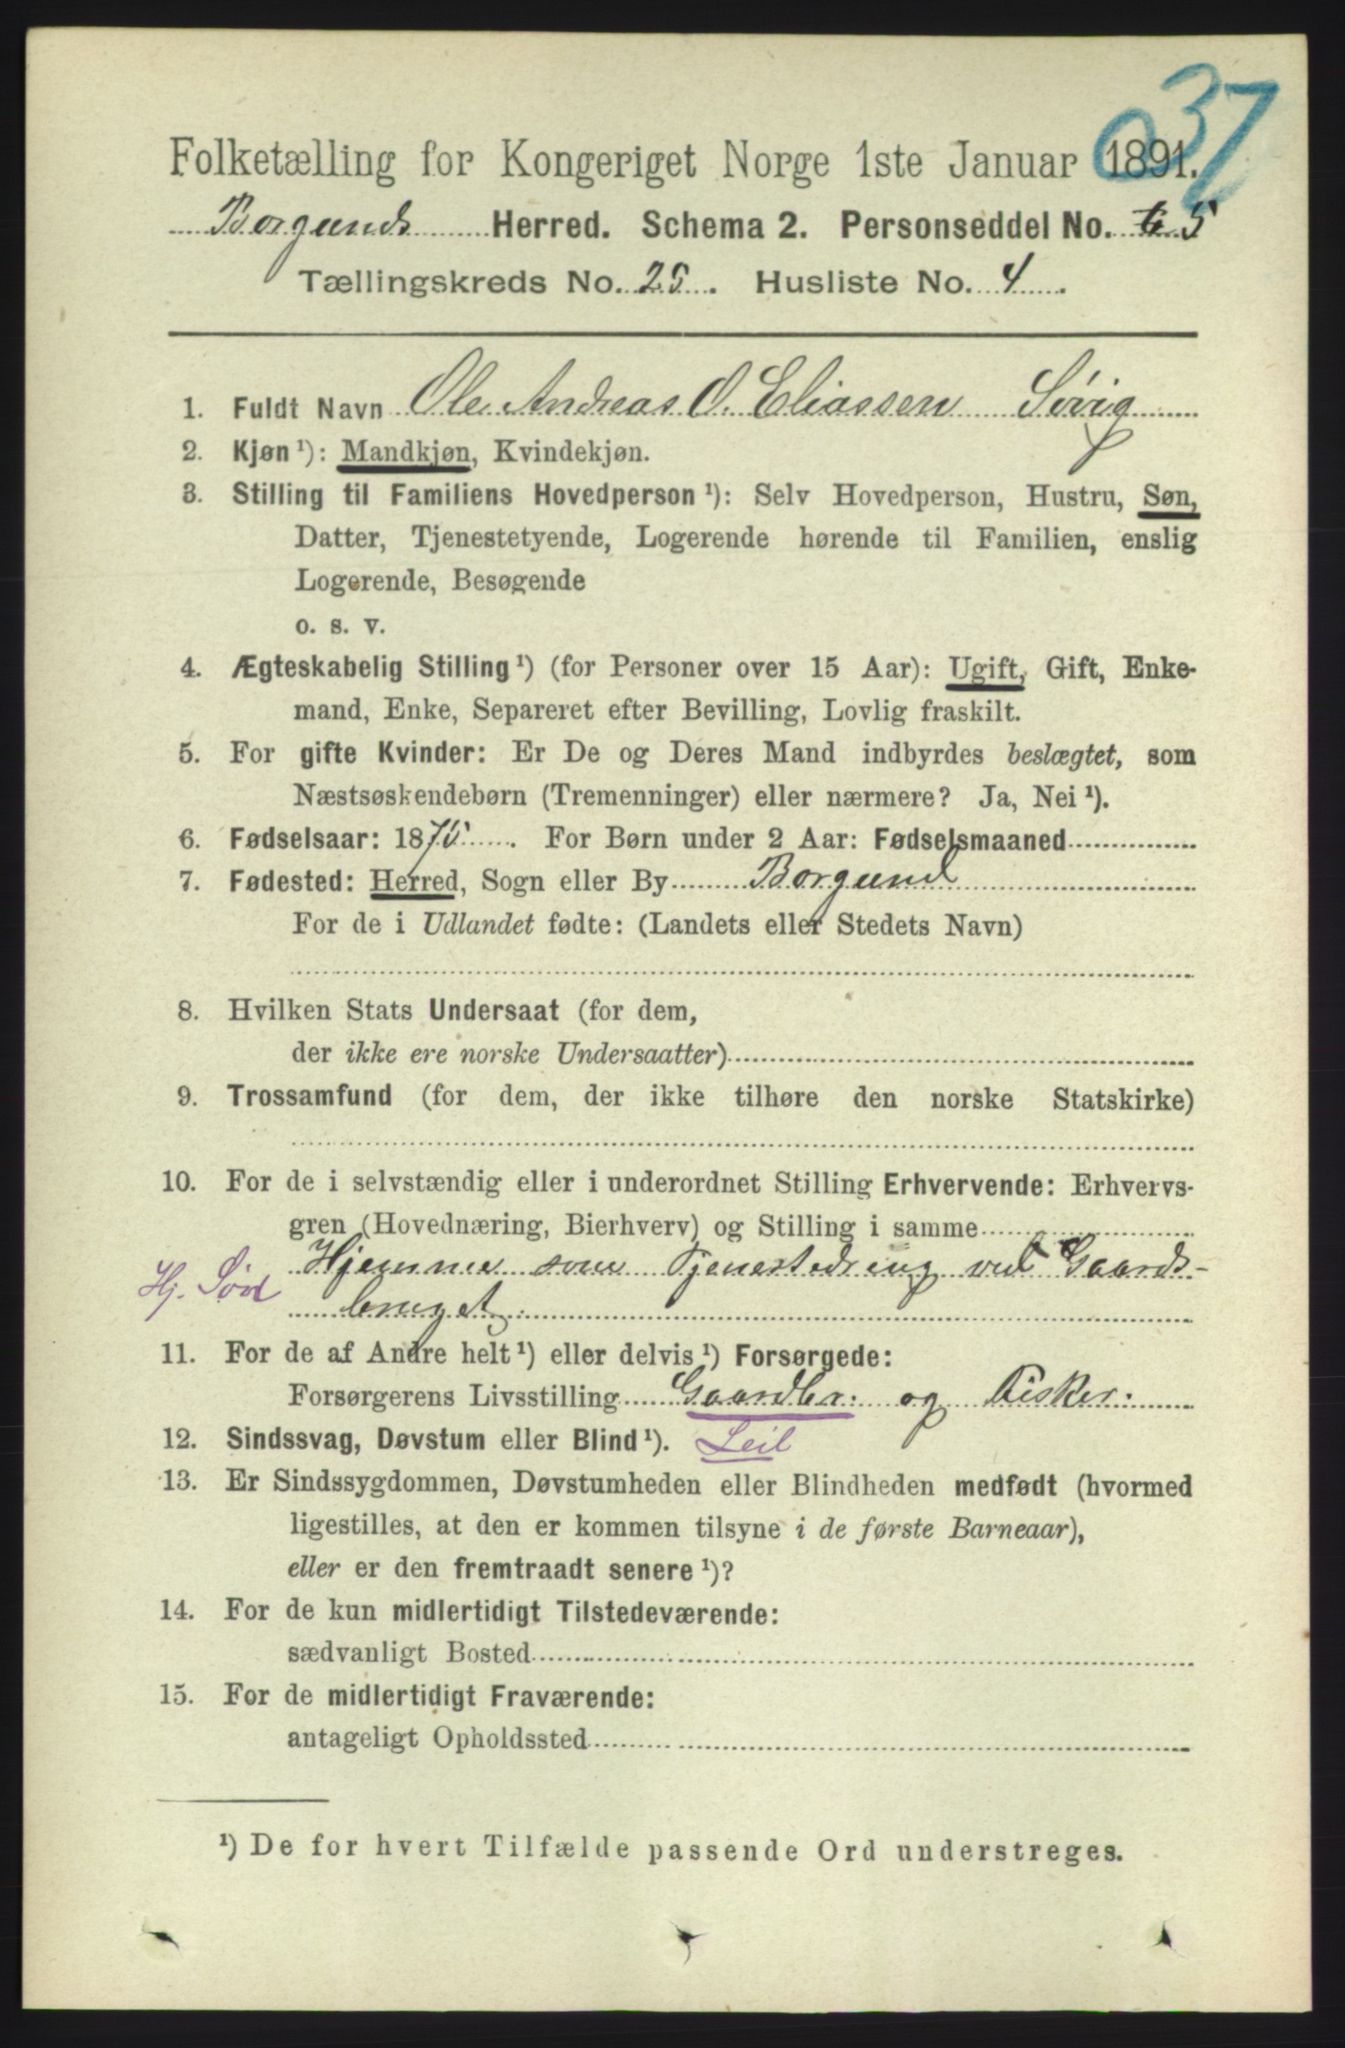 037
Folketælling for Kongeriget Norge 1ste Januar 1891.
Borgunds Herred. Schema 2. Personseddel No. 6 5
Tællingskreds No. 25. Husliste No. 4.
1. Fuldt Navn Ole Andreas O. Eliassen Sørig
2. Kjøn ¹): Mandkjøn, Kvindekjøn.
3. Stilling til Familiens Hovedperson ¹): Selv Hovedperson, Hustru, Søn,
Datter, Tjenestetyende, Logerende hørende til Familien, enslig
Logerende, Besøgende
o. s. v.
4. Ægteskabelig Stilling ¹) (for Personer over 15 Aar): Ugift, Gift, Enke-
mand, Enke, Separeret efter Bevilling, Lovlig fraskilt.
5. For gifte Kvinder: Er De og Deres Mand indbyrdes beslægtet, som
Næstsøskendebørn (Tremenninger) eller nærmere? Ja, Nei ¹).
6. Fødselsaar: 1875. For Børn under 2 Aar: Fødselsmaaned
7. Fødested: Herred, Sogn eller By Borgund
For de i Udlandet fødte: (Landets eller Stedets Navn)
8. Hvilken Stats Undersaat (for dem,
der ikke ere norske Undersaatter)
9. Trossamfund (for dem, der ikke tilhøre den norske Statskirke)
10. For de i selvstændig eller i underordnet Stilling Erhvervende: Erhvervs-
gren (Hovednæring, Bierhverv) og Stilling i samme
Hjemme som Tjenestedreng ved Gaards-
Hj. Sød bruget
11. For de af Andre helt ¹) eller delvis ¹) Forsørgede:
Forsørgerens Livsstilling Gaardbr. og Fisker.
12. Sindssvag, Døvstum eller Blind ¹). Leil
13. Er Sindssygdommen, Døvstumheden eller Blindheden medfødt (hvormed
ligestilles, at den er kommen tilsyne i de første Barneaar),
eller er den fremtraadt senere ¹)?
14. For de kun midlertidigt Tilstedeværende:
sædvanligt Bosted
15. For de midlertidigt Fraværende:
antageligt Opholdssted
¹) De for hvert Tilfælde passende Ord understreges.